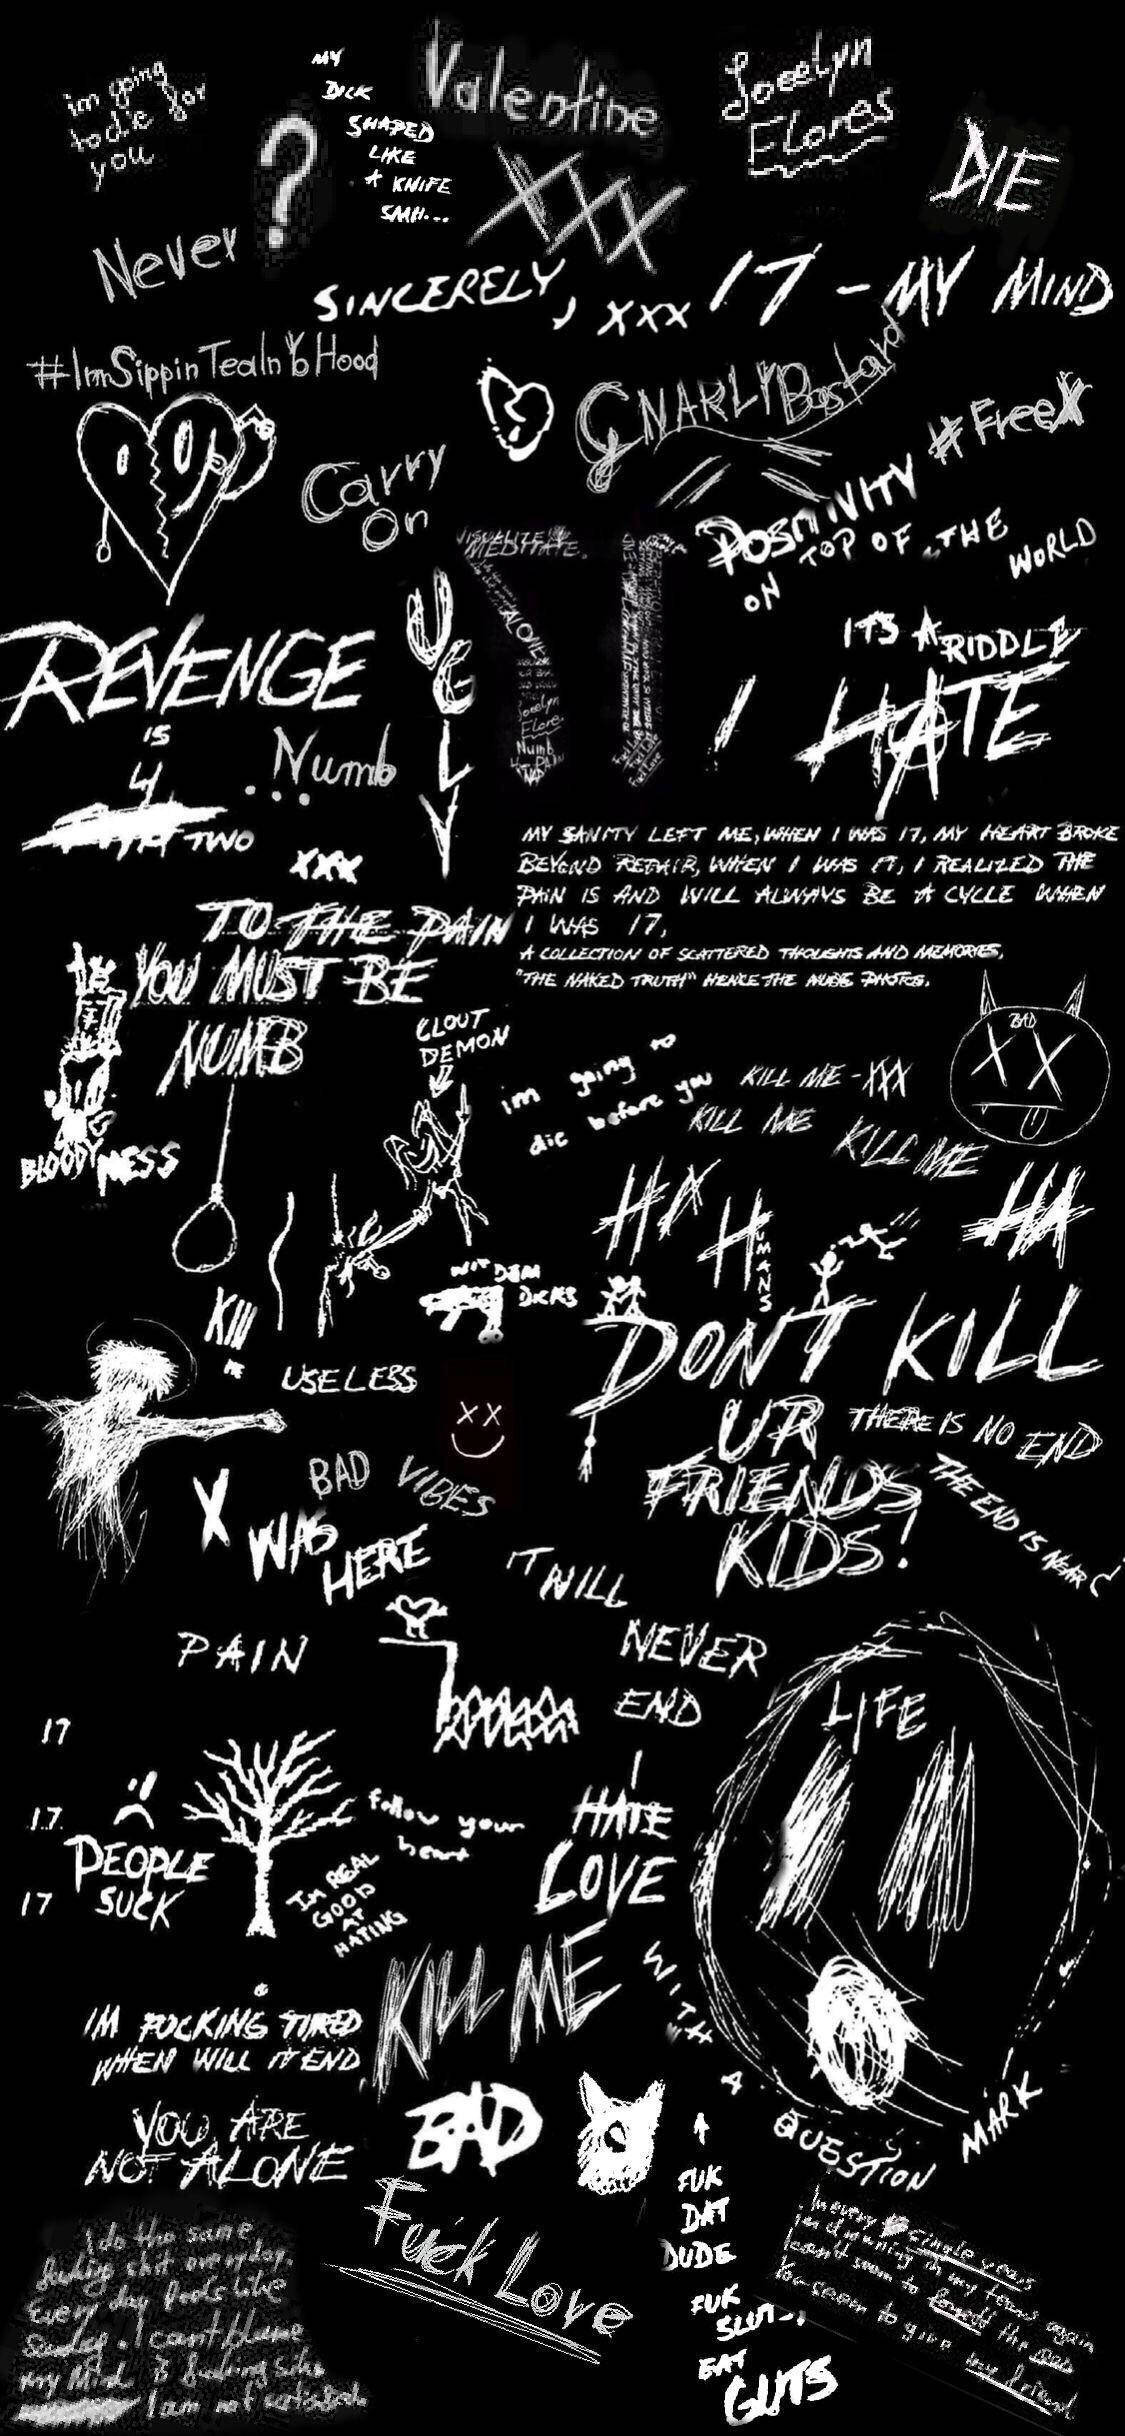 im going
to die for
you
?
MY
DICK
SHAPED
LIKE
A KNIFE
SMH...
Valentine
XXX
Jocelyn
Flores
DIE
Never
SINCERELY, XXX
17 - MY MIND
#ImSippinTeaInYoHood
GNARLY Bastard
#FreeX
Carry
On
VISUALIZE &
MEDITATE.
ALONE
Jocelyn
Flores
Numb
Fuck Love
POSITIVITY
ON TOP OF THE WORLD
ITS A RIDDLE
I HATE
REVENGE
IS
4
TWO
...Numb
UGLY
XXX
MY SANITY LEFT ME, WHEN I WAS 17, MY HEART BROKE
BEYOND REPAIR, WHEN I WAS 17, I REALIZED THE
PAIN IS AND WILL ALWAYS BE A CYCLE WHEN
I WAS 17,
A COLLECTION OF SCATTERED THOUGHTS AND MEMORIES,
"THE NAKED TRUTH" HENCE THE NUDE PHOTOS.
TO THE PAIN
YOU MUST BE
NUMB
CLOUT
DEMON
BLOODY MESS
im going to
die before you
KILL ME - XXX
KILL ME
KILL ME
BAD
XX
HA
HUMANS
HA
WIT DEM
DICKS
Kill
me
USELESS
XX
DONT KILL
UR
FRIENDS
KIDS!
THERE IS NO END
THE END IS NEAR
BAD VIBES
X
WAS
HERE
IT WILL
NEVER
END
PAIN
LIFE
17
17.
17
PEOPLE
SUCK
follow your
heart
IM REAL
GOOD
AT
HATING
I
HATE
LOVE
KILL ME
WITH A QUESTION MARK
IM FUCKING TIRED
WHEN WILL IT END
YOU ARE
NOT ALONE
BAD
Fuck Love
FUK
DAT
DUDE
FUK
EAT
GUTS
I do the same
fucking shit everyday.
Every day feels like
Sunday. I cant blame
my Mind is fucking
I am not
In every single years
im drowning in my tears again
I can't seem to the
You seem to give my friend